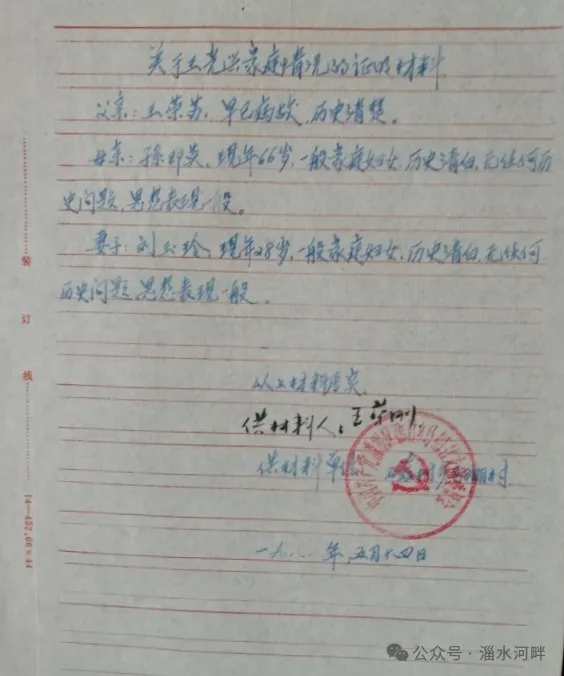 关于王光兴家庭情况的证明材料
父亲:王荣芳,早已病故,历史清楚。
母亲:孙邦英,现年66岁,一般家庭妇女,历史清白,无任何历
史问题,思想表现一般。
妻子:刘玉玲,现年28岁,一般家庭妇女,历史清白,无任何
历史问题,思想表现一般。
以上材料属实。
供材料人:王荣刚
供材料单位:
村
一九八 年五月十四日
装
订
线
14—432.66×44
公众号·淄水河畔